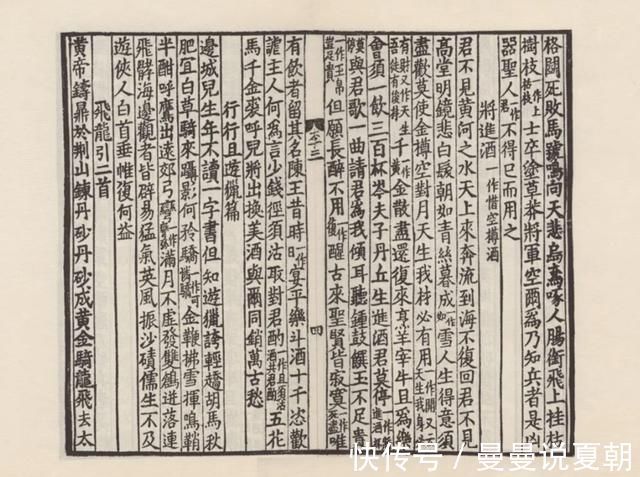 格鬭死敗馬號鳴向天悲烏鳶啄人腸銜飛上挂枝
樹枝一作上枯枝士卒塗草莽將軍空爾爲乃知兵者是凶
器聖人一作君不得已而用之
將進酒一作惜空樽酒
君不見黃河之水天上來奔流到海不復回君不見
高堂明鏡悲白髮朝如青絲暮成一作如雪人生得意須
盡歡莫使金樽空對月天生我材必有用一作開又云天生我身必
有財又作天生吾徒有俊材千一作黃金散盡還復來烹羊宰牛且爲樂
會須一飲三百杯岑夫子丹丘生進酒君莫停一作
與君歌一曲請君爲我傾耳聽鍾鼓饌玉不足貴
一作玉帛豈足貴但願長醉不用一作復醒古來聖賢皆寂寞一作死盡唯
四
有飲者留其名陳王昔時一作日宴平樂斗酒十千恣歡
謔主人何爲言少錢徑須沽取對君酌一作且須沽酒共君酌五花
馬千金裘呼兒將出換美酒與爾同銷萬古愁
行行且遊獵篇
邊城兒生年不讀一字書但知遊獵誇輕趫胡馬秋
肥宜白草騎來躡影何矜驕金鞭拂雪揮鳴鞘
半酣呼鷹出遠郊弓彎一作滿月不虛發雙鶬迸落連
飛髇海邊觀者皆辟易猛氣英風振沙磧儒生不及
遊俠人白首垂帷復何益
飛龍引二首
黃帝鑄鼎於荊山鍊丹砂丹砂成黃金騎龍飛去太
快传号 / 曼曼说夏朝